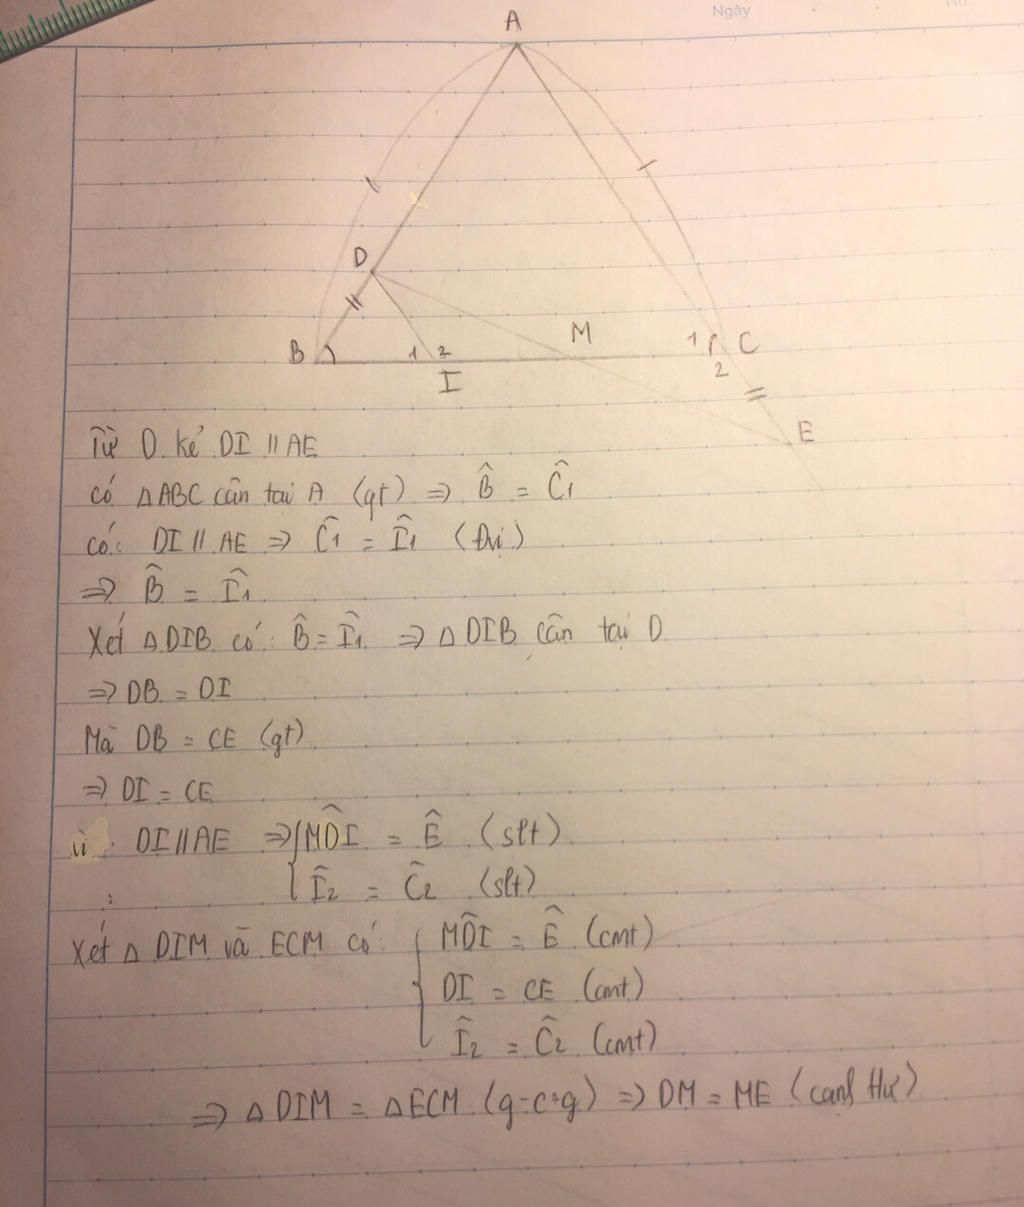 Ngày
No.
A
D
B
1 2
I
M
1
C
2
E
Từ D kẻ DI // AE
có ΔABC cân tại A (gt) ⇒ B̂ = Ĉ1
có: DI // AE ⇒ Ĉ1 = Î1 (Đvị)
⇒ B̂ = Î1
Xét ΔDIB có: B̂ = Î1 ⇒ ΔDIB cân tại D
⇒ DB = DI
Mà DB = CE (gt)
⇒ DI = CE
vì: DI // AE ⇒ { MD̂I = Ê (slt)
Î2 = Ĉ2 (slt)
Xét Δ DIM và ECM có: { MD̂I = Ê (cmt)
DI = CE (cmt)
Î2 = Ĉ2 (cmt)
⇒ ΔDIM = ΔECM (g-c-g) ⇒ DM = ME (cạnh tư)